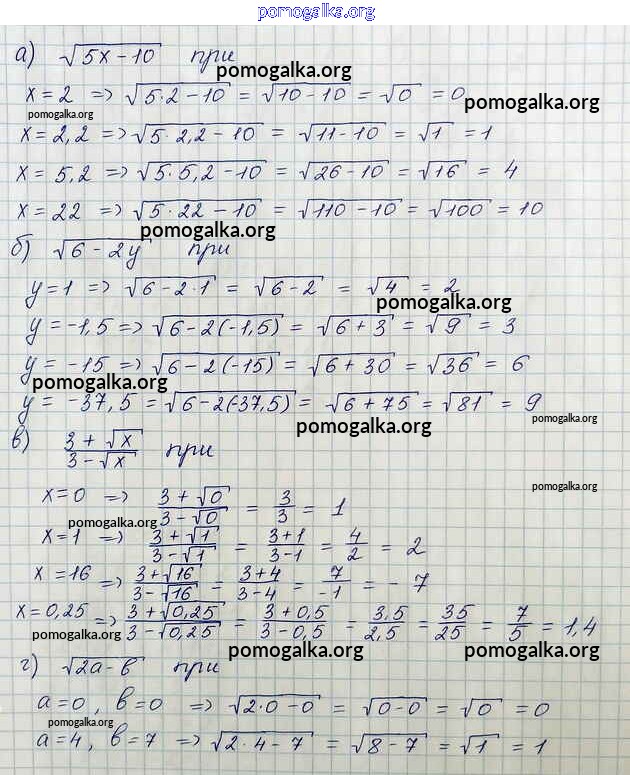 pomogalka.org
а) √5x-10 при
pomogalka.org
x = 2 => √5·2-10 = √10-10 = √0 = 0
pomogalka.org
pomogalka.org
x = 2,2 => √5·2,2-10 = √11-10 = √1 = 1
x = 5,2 => √5·5,2-10 = √26-10 = √16 = 4
x = 22 => √5·22-10 = √110-10 = √100 = 10
pomogalka.org
б) √6-2y при
y = 1 => √6-2·1 = √6-2 = √4 = 2
pomogalka.org
y = -1,5 => √6-2(-1,5) = √6+3 = √9 = 3
y = -15 => √6-2(-15) = √6+30 = √36 = 6
pomogalka.org
y = -37,5 = √6-2(-37,5) = √6+75 = √81 = 9
pomogalka.org
pomogalka.org
в) 3+√x / 3-√x при
pomogalka.org
x=0 => 3+√0 / 3-√0 = 3/3 = 1
pomogalka.org
x=1 => 3+√1 / 3-√1 = 3+1 / 3-1 = 4/2 = 2
x=16 => 3+√16 / 3-√16 = 3+4 / 3-4 = 7/-1 = -7
x=0,25 => 3+√0,25 / 3-√0,25 = 3+0,5 / 3-0,5 = 3,5/2,5 = 35/25 = 7/5 = 1,4
pomogalka.org
pomogalka.org
pomogalka.org
г) √2a-b при
a=0, b=0 => √2·0-0 = √0-0 = √0 = 0
pomogalka.org
a=4, b=7 => √2·4-7 = √8-7 = √1 = 1